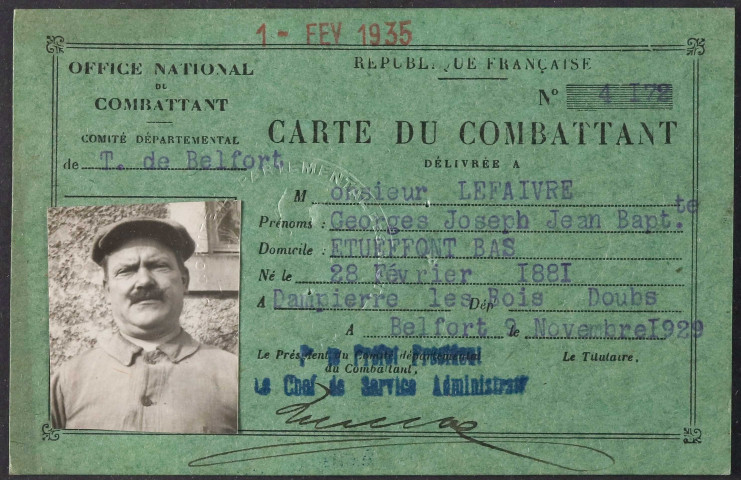 1 - FEV 1935
OFFICE NATIONAL
DU
COMBATTANT
COMITÉ DÉPARTEMENTAL
de T. de Belfort
RÉPUBLIQUE FRANÇAISE
N° 4 I72
CARTE DU COMBATTANT
DÉLIVRÉE A
Monsieur LEFAIVRE
Prénoms : Georges Joseph Jean Bapt.te
Domicile : ETUEFFONT BAS
Né le 28 Février I88I
A Dampierre les Bois Dép Doubs
A Belfort 9 le Novembre I929
Le Président du Comité départemental
du Combattant,
Le Titulaire,
P. le Préfet Président
Le Chef de Service Administratif